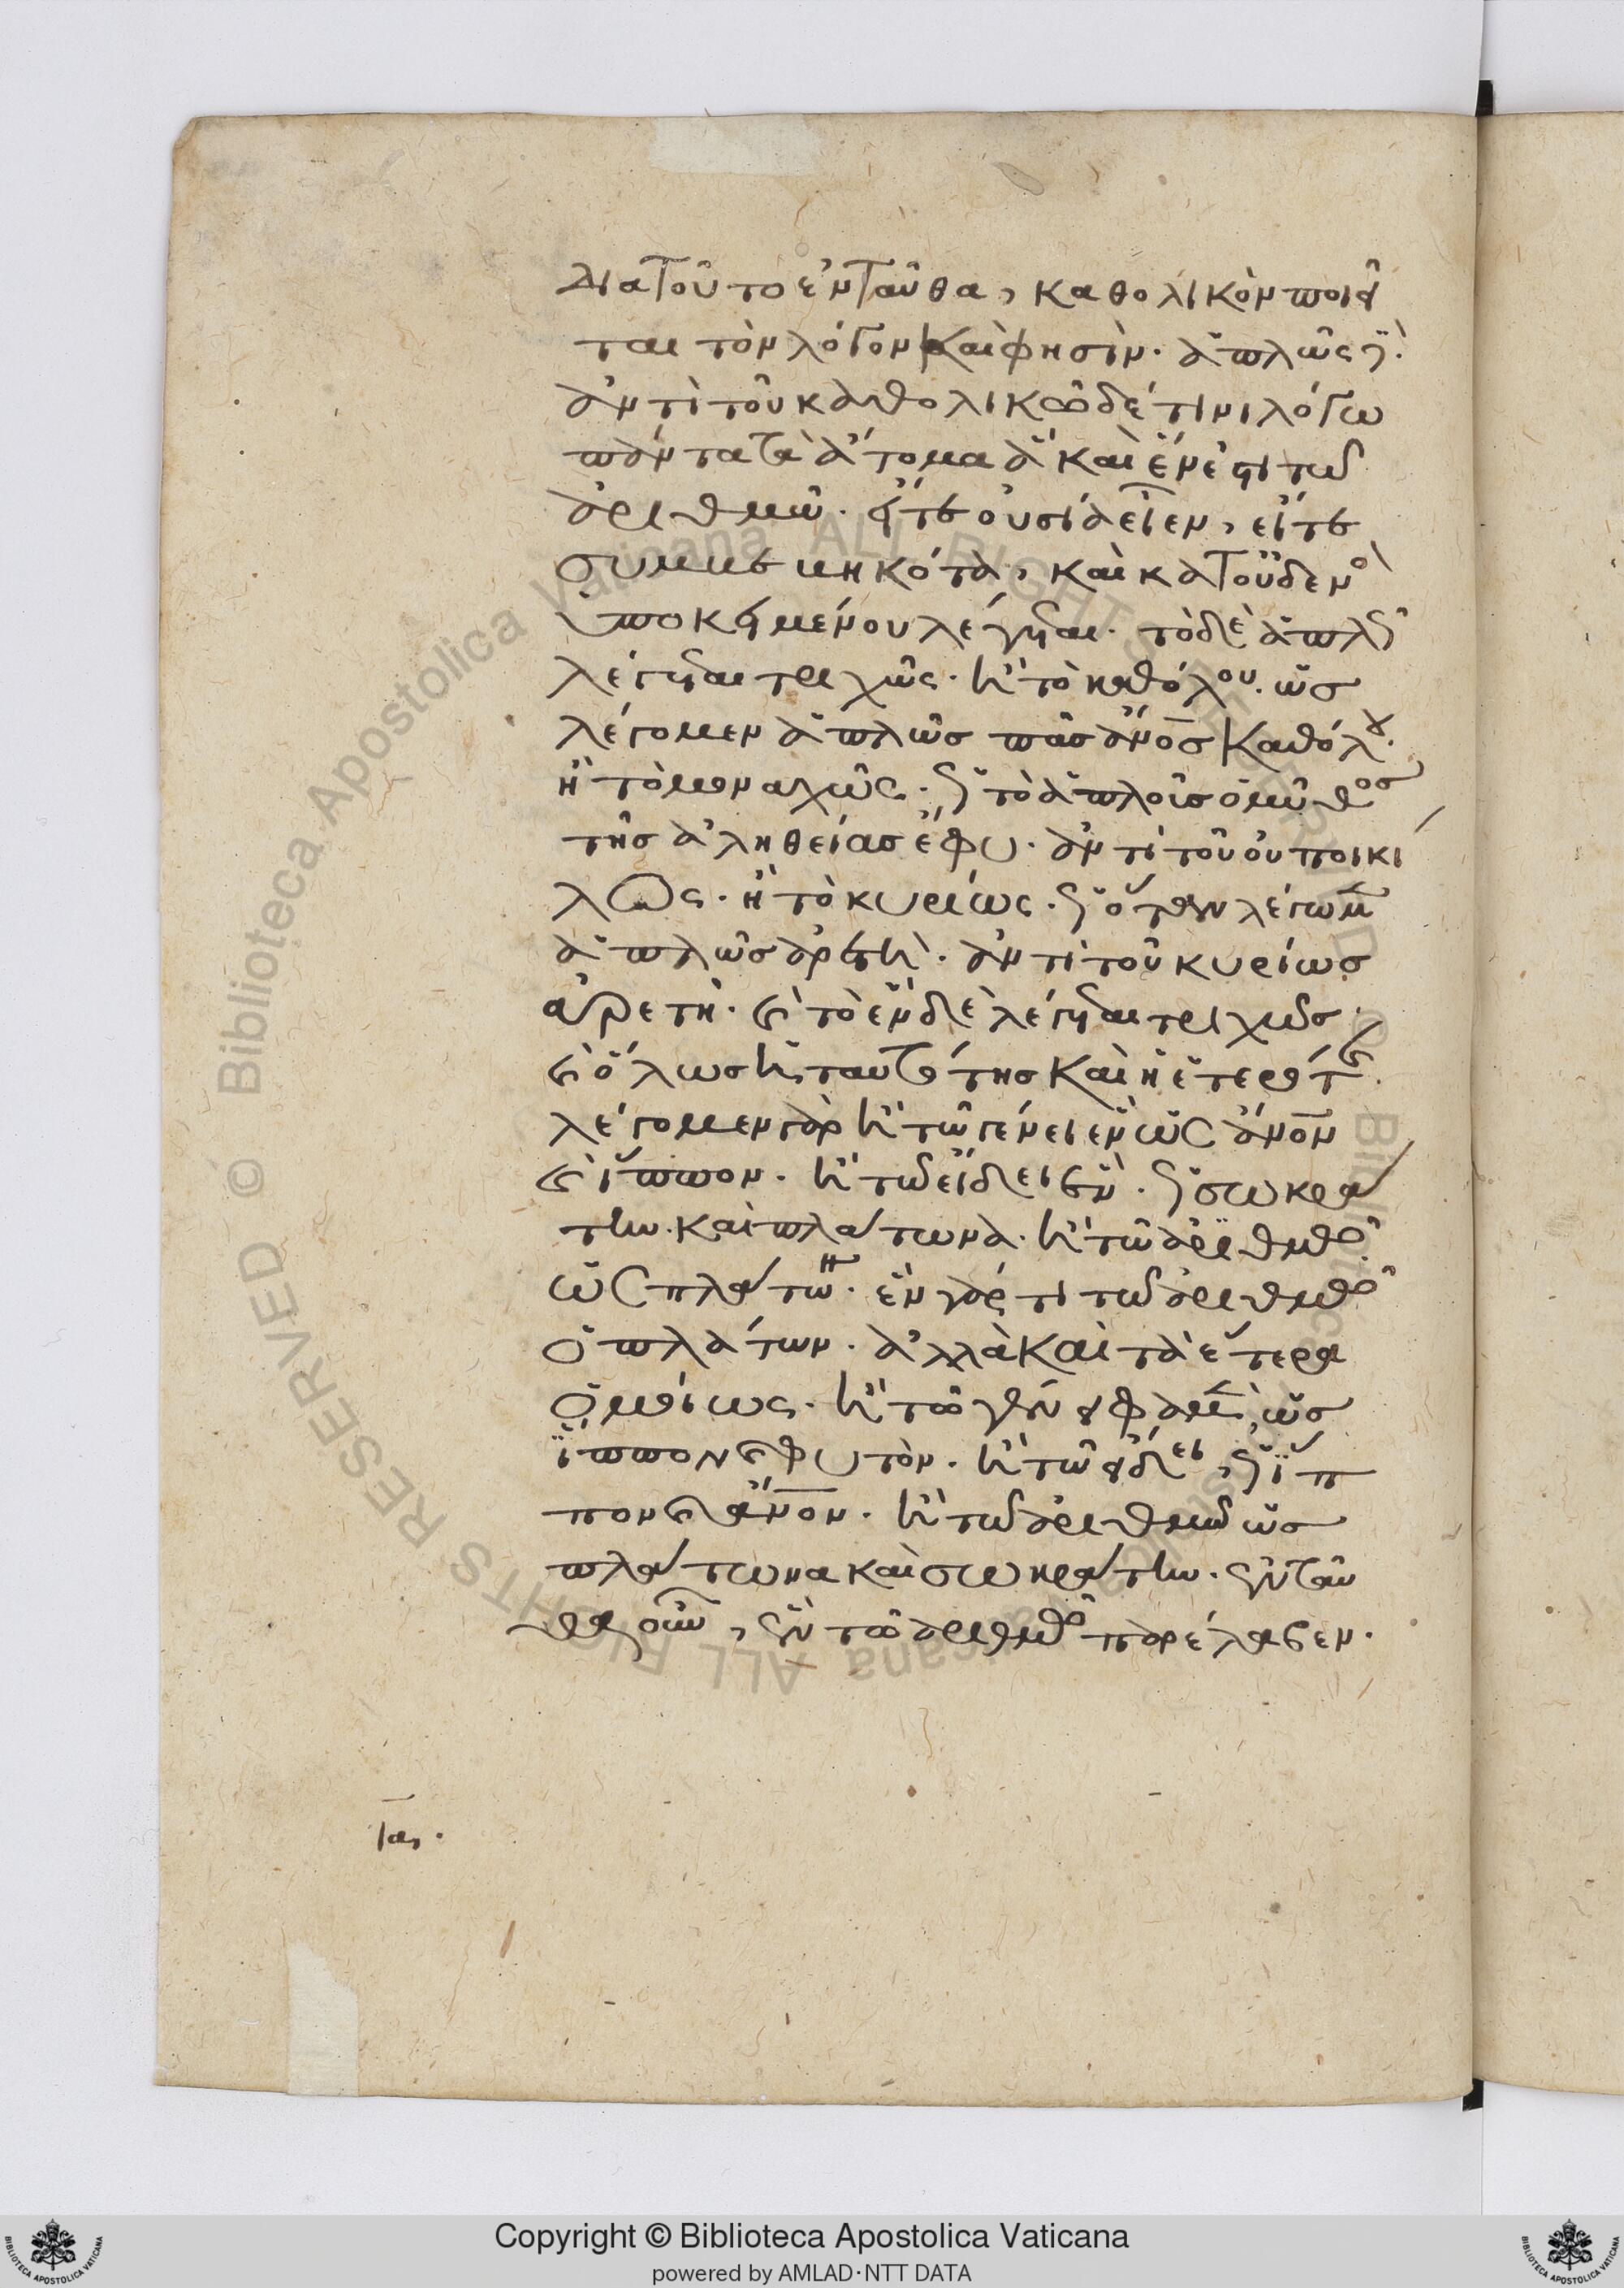 διατοῦτο ἐνταῦθα, καθολικὸν ποιεῖ
ται τὸν λόγον καὶ φησὶν. ἁπλῶς δὲ.
ἀντὶ τοῦ καθολικῶ δέ τινι λόγω
πάντα τὰ ἄτομα ἃ καὶ ἕν ἐστι τῶ
ἀριθμῶ. εἴτε οὐσία εἶεν, εἴτε
συμβεβηκότα, καὶ κατοὐδενὸ
ὑποκειμένου λέγεται. τὸ δὲ ἁπλῶς
λέγεται τριχῶς. ἢ τὸ καθόλου. ὡς
λέγομεν ἁπλῶς πᾶς ἄνος καθόλου.
ἢ τὸ μοναχῶς. ὡς τὸ ἁπλοῦς ὁ μῦθος
τῆς ἀληθείας ἔφυ. ἀντὶ τοῦ οὐ ποικί
λως. ἢ τὸ κυρίως. ὡς ὅταν λέγωμεν
ἁπλῶς ἀρετὴ. ἀντὶ τοῦ κυρίως
ἀρετή. καὶ τὸ ἓν δὲ λέγεται τριχῶς.
καὶ ὅλως ἡ ταυτότης καὶ ἡ ἑτερότης.
λέγομεν γὰρ ἢ τῶ γένει ἓν ὡς ἄνον
καὶ ἵππον. ἢ τῶ εἴδει ἓν. ὡς σωκρά
την καὶ πλάτωνα. ἢ τῶ ἀριθμῶ.
ὡς πλάτων. ἓν γάρ τι τῶ ἀριθμῶ
ὁ πλάτων. ἀλλὰ καὶ τὰ ἕτερα
ὁμοίως. ἢ τῶ γένει φαμὲν, ὡς
ἵππον καὶ φυτὸν. ἢ τῶ εἴδει, ὡς ἵπ
πον καὶ ἄνον. ἢ τῶ ἀριθμῶ ὡς
πλάτωνα καὶ σωκράτην. ἐνταῦ
θα οὖν, ἓν τῶ ἀριθμῶ παρέλαβεν.
ια.
Copyright © Biblioteca Apostolica Vaticana
powered by AMLAD·NTT DATA